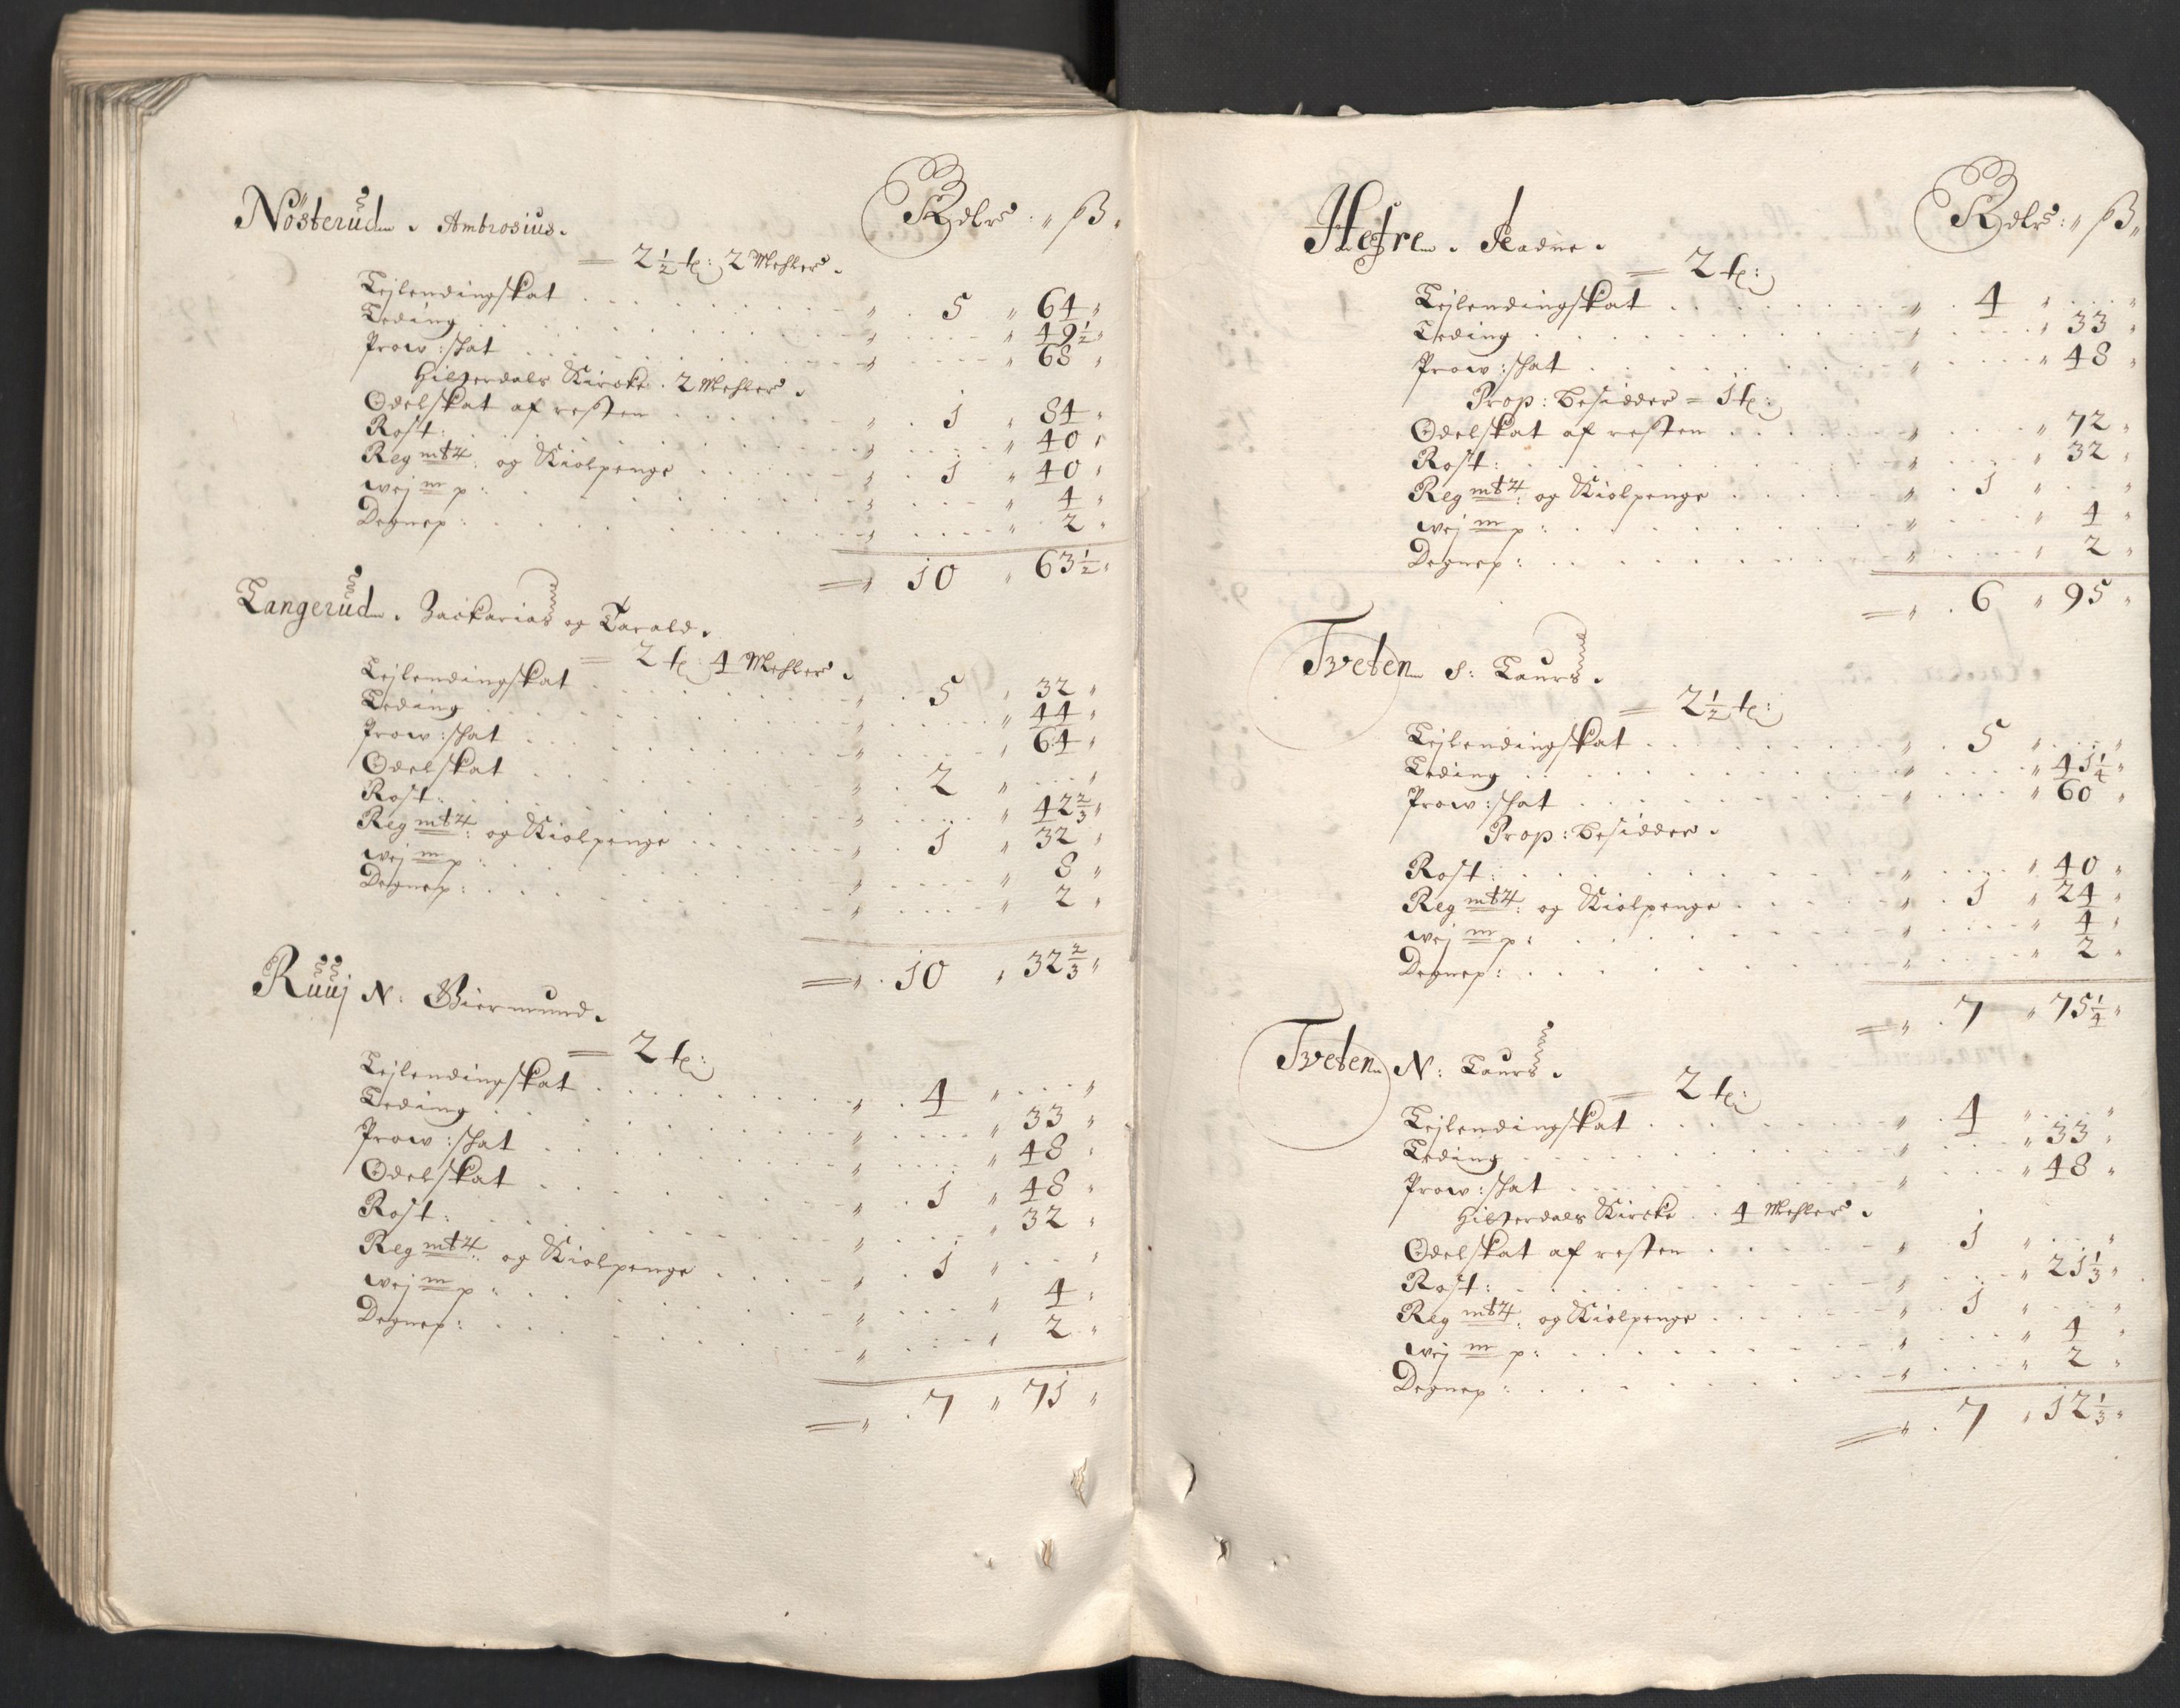 Rdlr: ß
Nösterud Ambrosius.
= 2 1/2 t: 2 Mehler.
Lejlendingskat 5 64
Leding 49 1/2
Prow:skat 68
Hitterdals Kircke. 2 Mehler.
Odelskat af resten 1 84
Rost: 40
Reg mt4: og Kiolpenge 1 40
wej m p: 4
Degnep: 2
= 10 63 1/2
Langerud. Zackarias og Tarald.
= 2 t: 4 Mehler.
Lejlendingskat 5 32
Leding 44
Prow:skat 64
Odelskat 2
Rost: 42 2/3
Reg mt4: og Kiolpenge 1 32
wej m p: 8
Degnep: 2
= 10 32 2/3
Ruuj N: Giermund.
= 2 t:
Lejlendingskat 4
Leding 33
Prow:skat 48
Odelskat 1 48
Rost: 32
Reg mt4: og Kiolpenge 1
wej m p: 4
Degnep: 2
= 7 71
Rdlr: ß
Hefre.
= 2 t:
Lejlendingskat 4
Leding 33
Prow:skat 48
Prop: besidder = 1 t:
Odelskat af resten 72
Rost: 32
Reg mt4: og Kiolpenge 1
wej m p: 4
Degnep: 2
= 6 95
Tveten S: Laurs.
= 2 1/2 t:
Lejlendingskat 5
Leding 41 1/4
Prow:skat 60
Prop: besidder.
Rost: 40
Reg mt4: og Kiolpenge 1 24
wej m p: 4
Degnep: 2
= 7 75 1/4
Tveten N: Laurs.
= 2 t:
Lejlendingskat 4
Leding 33
Prow:skat 48
Hitterdals Kircke. 4 Mehler.
Odelskat af resten 1
Rost: 21 1/3
Reg mt4: og Kiolpenge 1
wej m p: 4
Degnep: 2
= 7 12 1/3